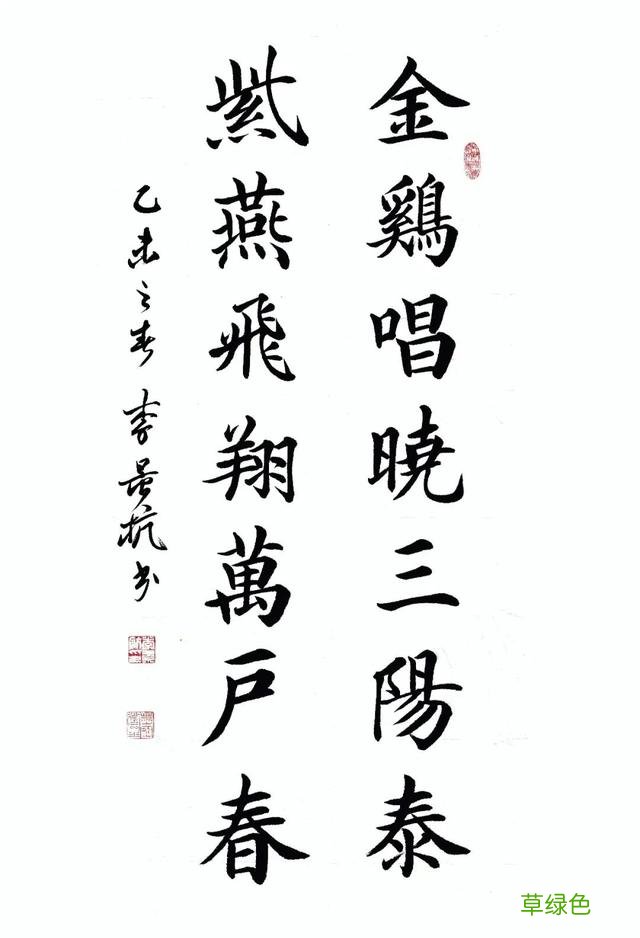 金鷄唱曉三陽泰
紫燕飛翔萬戶春
乙未之春 李景杭书
草绿色